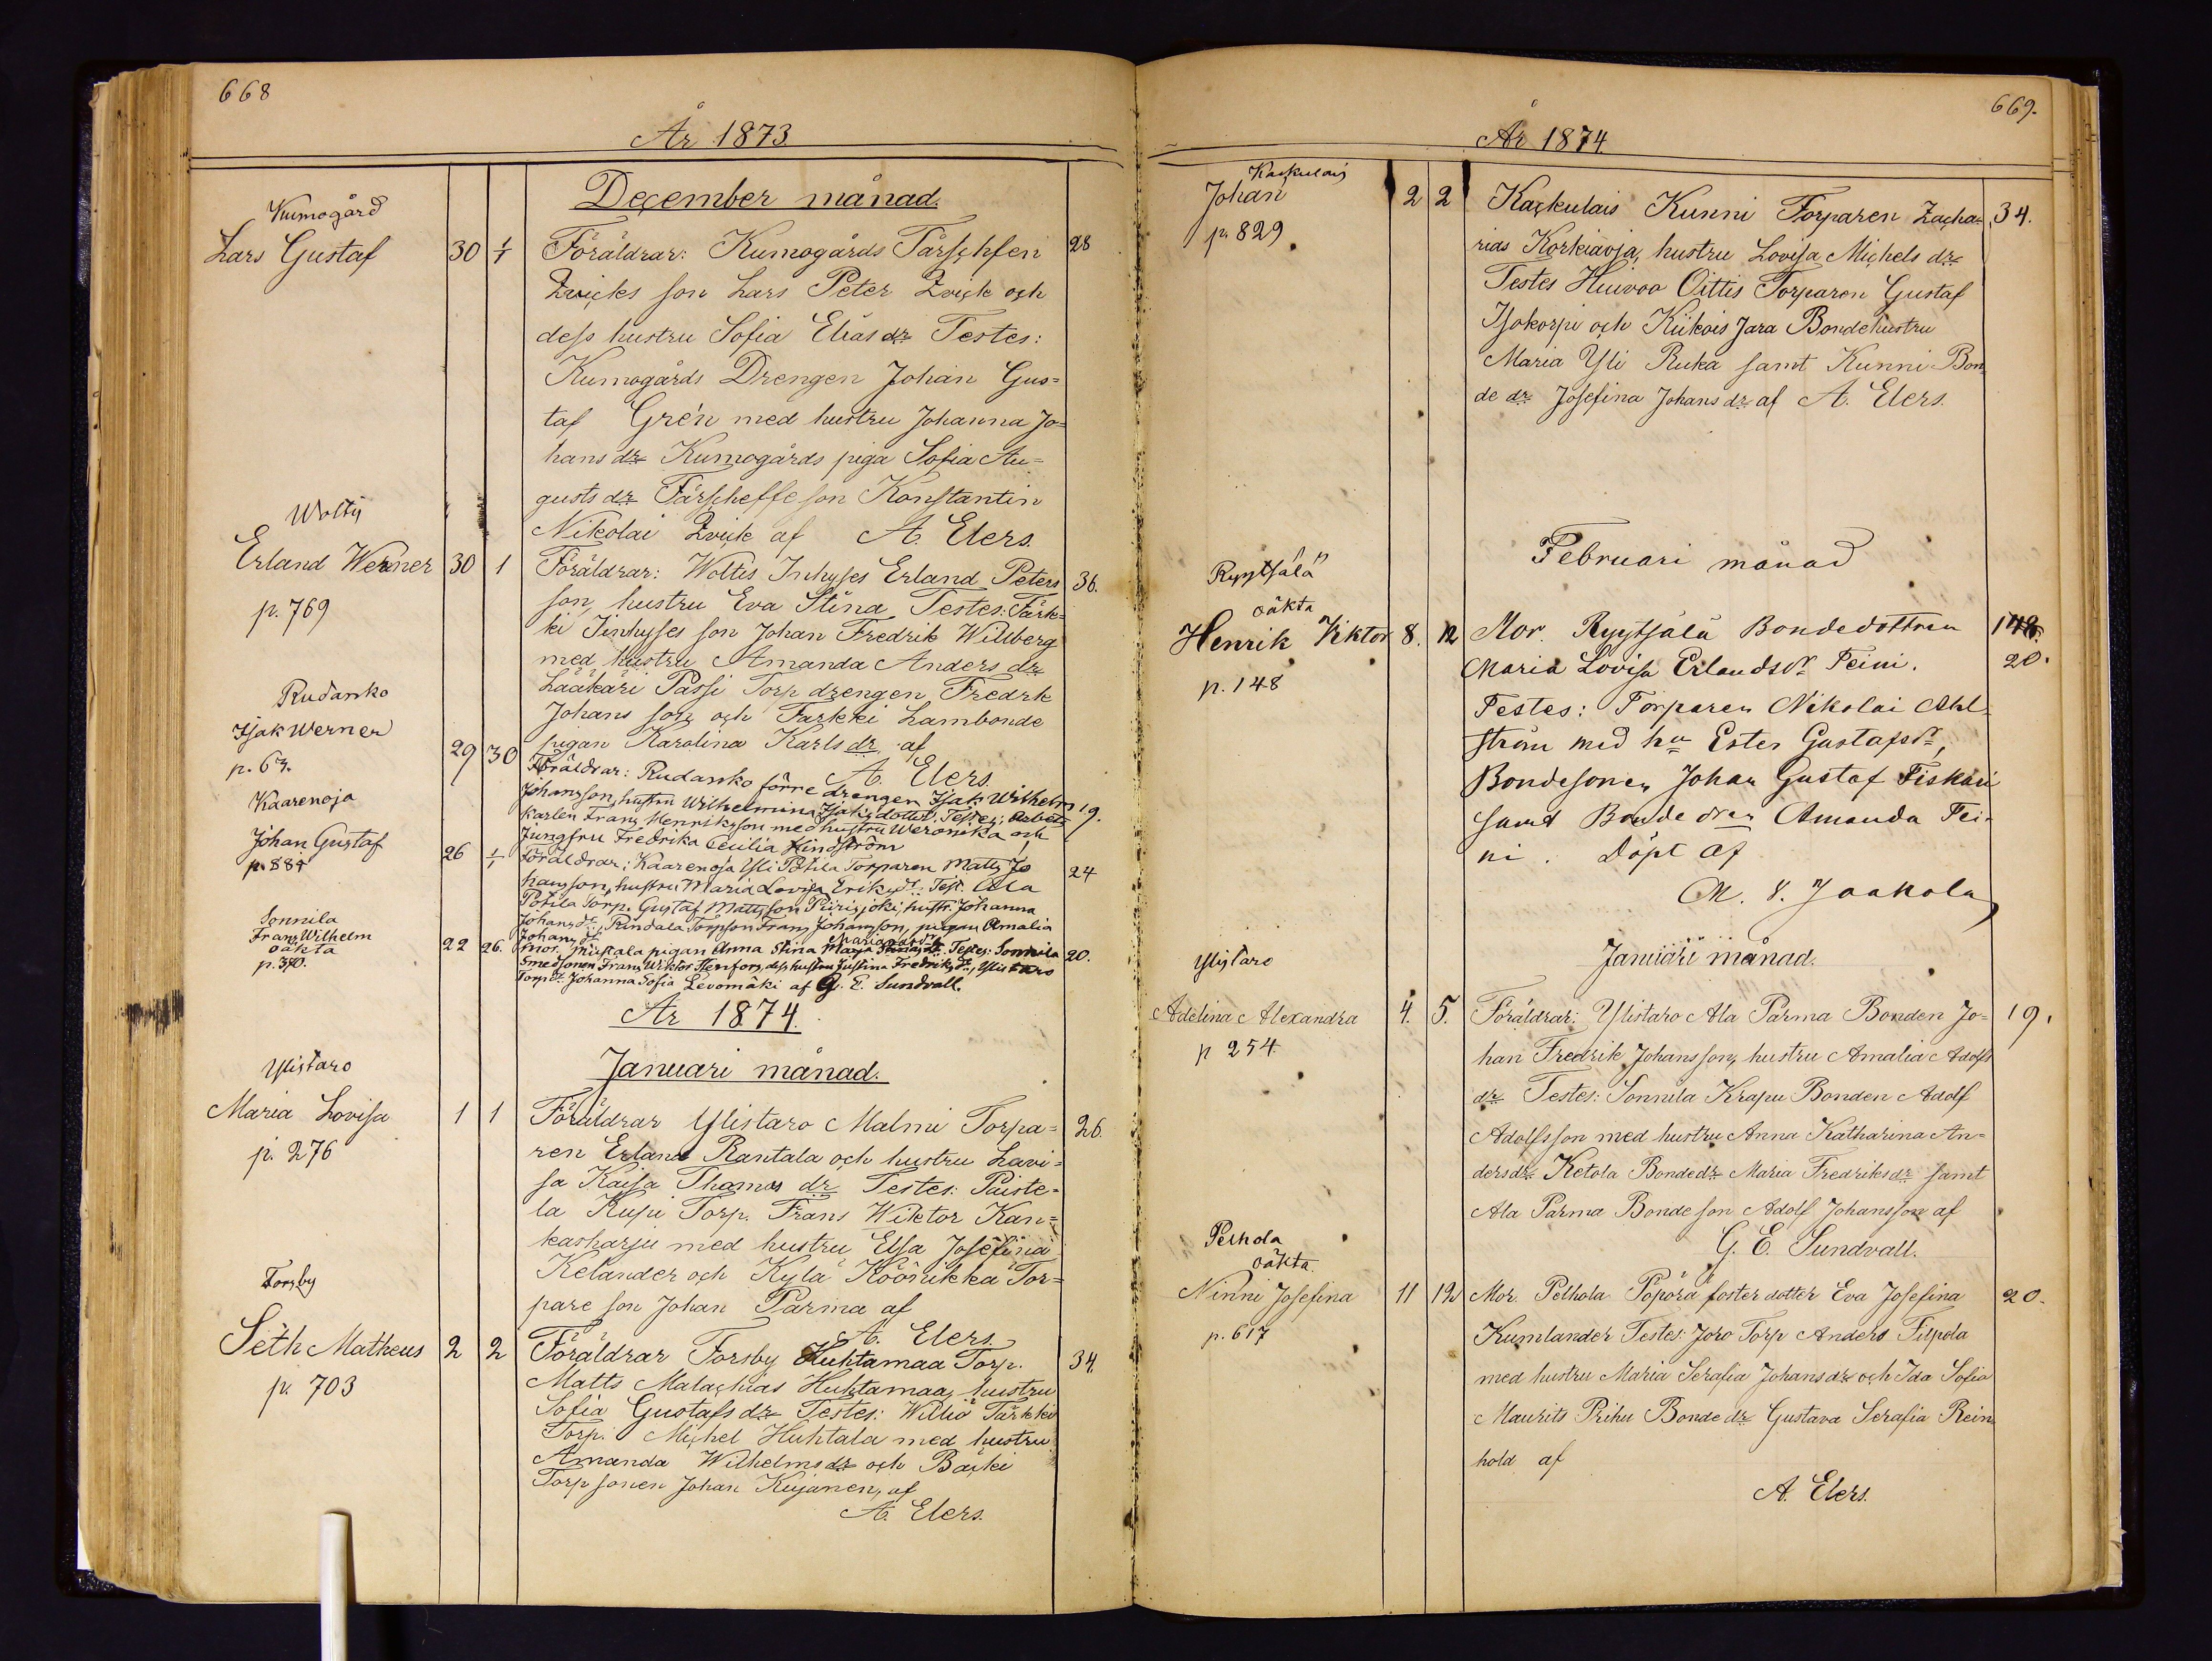 668
År 1873.
December månad.
Kumogård
Lars Gustaf 30 1/1 Föräldrar: Kumogårds Färschfen 28
Zwicks son Lars Peter Zwick och
dess hustru Sofia Eliasdr Testes:
Kumogårds Drengen Johan Gus=
taf Grén med hustru Johanna Jo=
hansdr Kumogårds piga Sofia Au=
gustsdr Färscheffe son Konstantin
Nikolai Zwick af A. Elers.
Woltis
Erland Werner 30 1 Föräldrar: Woltis Inhyses Erland Peters 36.
p. 769
son, hustru Eva Stina Testes: Färk=
ki Jinhyses son Johan Fredrik Willberg
med hustru Amanda Anders dr
Lääkäri Passi Torp drengen Fredrk
Johans son och Farkki Lambonde
pigan Karolina Karlsdr af
A. Elers.
Rudanko
Isak Werner 29 30 Föräldrar: Rudanko förre drengen Isak Wilhelm 19.
p. 63.
Johansson, hustru Wilhelmina Isaks dotter. Testes: Arbets
karlen Frans Henriksson med hustru Weronika och
Jungfru Fredrika Cecilia Hindström
Kaarenoja
Johan Gustaf 26 1/1 Föräldrar: Kaarenoja Yli Potila Torparen Matts Jo 24
p. 884
hansson, hustru Maria Lovisa Eriksdr. Test. Ala
Potila Torp. Gustaf Mattsson Piirisjoki, hustr. Johanna
Johansdr, Rindala Torpson Frans Johansson, pigan Amalia
Johansdr
Sonnila
Frans Wilhelm 22 26. Mor. pigan Anna Stina Testes: Sonnila 20.
oäkta
p. 370.
Smedsonen Frans Wiktor Stenfors, dess hustru Justina Fredriksdr, Ylistaro
Torpdr. Johanna Sofia Levomäki af G. E. Sundvall.
År 1874.
Januari månad.
Ylistaro
Maria Lovisa 1 1 Föräldrar Ylistaro Malmi Torpa= 26.
p. 276
ren Erland Rantala och hustru Lavi=
sa Kaisa Thomas dr Testes: Paiste=
la Kupi Torp. Frans Wiktor Kan=
kasharju med hustru Elsa Josefina
Kelander och Kylä Köörikka Tor=
pare son Johan Parma af
A. Elers.
Forsby
Seth Matheus 2 2 Föräldrar Forsby Huhtamaa Torp. 34.
p. 703
Matts Malachias Huhtamaa, hustru
Sofia Gustafsdr Testes: Williö Tärkki
Torp. Michel Huhtala med hustru
Amanda Wilhelmsdr och Bäcki
Torp sonen Johan Kujanen, af
A. Elers.
669.
År 1874.
Kaskulais
Johan 2 2 Kaskulais Kunni Torparen Zacha= 34.
p. 829
rias Korkiaoja, hustru Lovisa Michels dr
Testes Huivoo Oittis Torparen Gustaf
Isokorpi och Kiikois Jara Bondehustru
Maria Yli Ruka samt Kunni Bon
de dr Josefina Johans dr af A. Elers.
Februari månad
Ryytsälä
oäkta
Henrik Viktor 8. 12 Mor. Ryytsälä Bondedottren 148.
p. 148
Maria Lovisa Erlandsdr Peini. 20.
Testes: Torparen Nikolai Ahl=
ström med hu Ester Gustafsdr,
Bondesonen Johan Gustaf Fiskari
samt Bonde dren Amanda Pei=
ni. Döpt af
M. V. Jaakola
Januari månad.
Ylistaro
Adelina Alexandra 4. 5. Föräldrar: Ylistaro Ala Parma Bonden Jo= 19.
p 254.
han Fredrik Johansson, hustru Amalia Adolfs
dr Testes: Sonnila Krapu Bonden Adolf
Adolfsson med hustru Anna Katharina An=
dersdr Ketola Bondedr Maria Fredriksdr samt
Ala Parma Bonde son Adolf Johansson af
G. E. Sundvall.
Pelhola
oäkta.
Ninni Josefina 11 12 Mor. Pelhola Pöpörä foster dotter Eva Josefina 20.
p. 617
Kumlander Testes: Joro Torp Anders Filpola
med hustru Maria Serafia Johansdr och Ida Sofia
Maurits Prihu Bonde dr Gustava Serafia Rein
hold af
A. Elers.